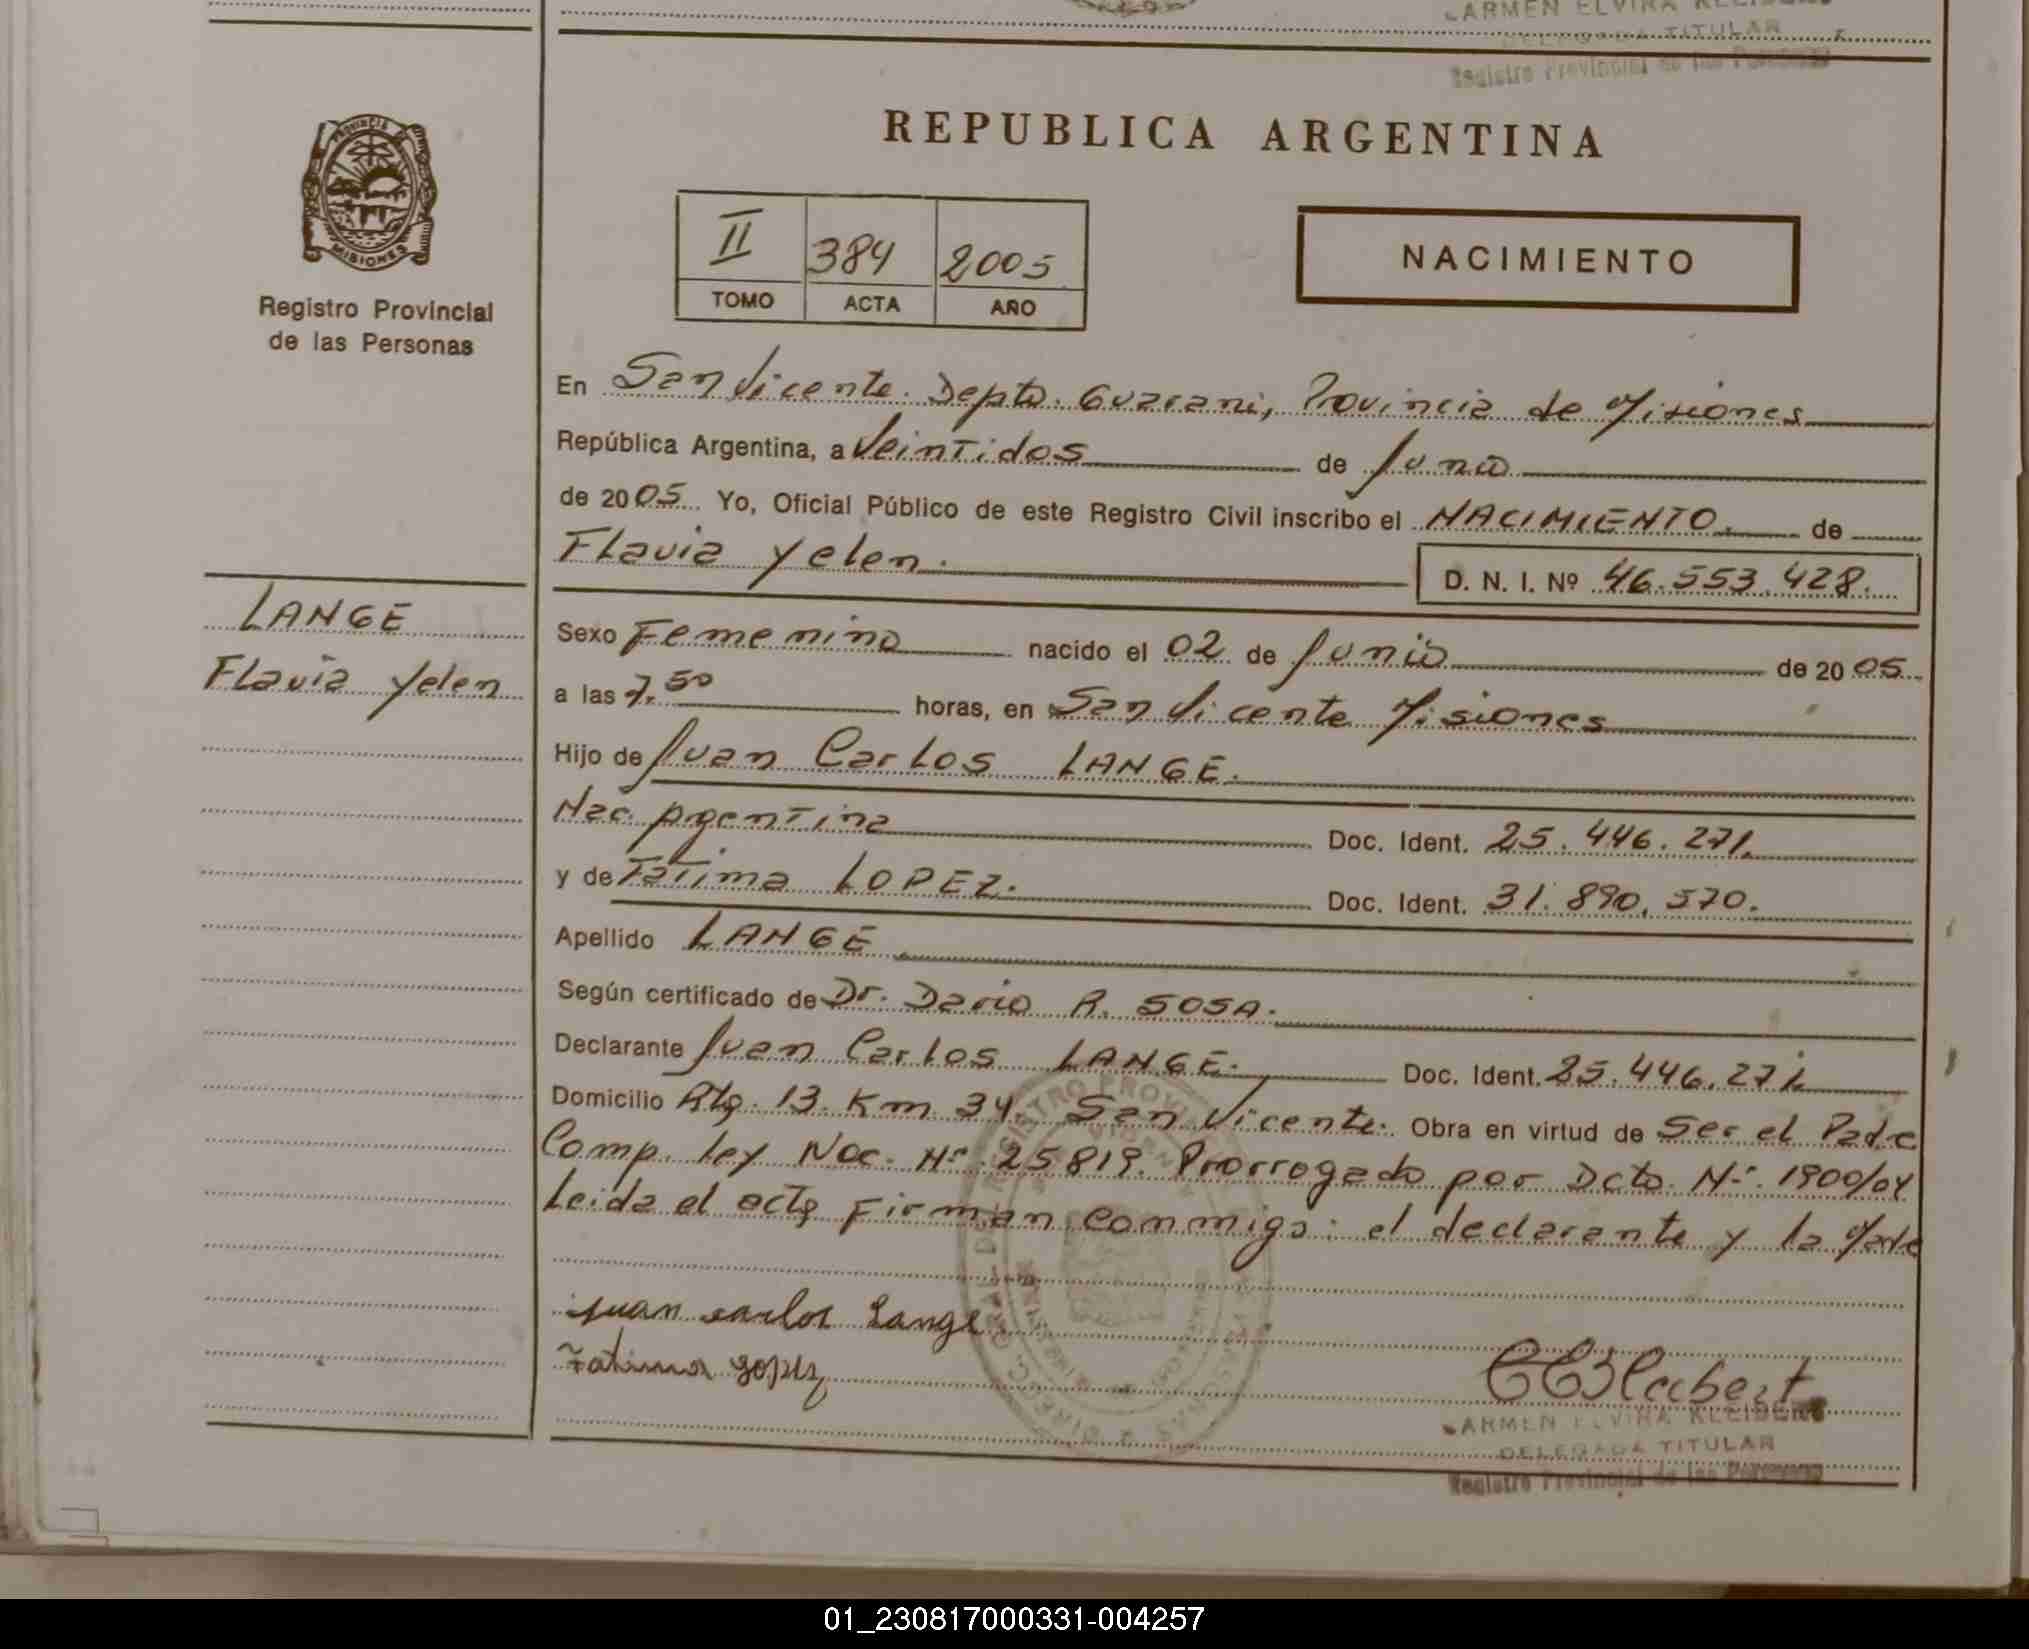 ARMEN ELVIRA KLEIBERT
DELEGADA TITULAR
Registro Provincial de las Personas
PROVINCIA DE
MISIONES
Registro Provincial
de las Personas
REPUBLICA ARGENTINA
II 384 2005
TOMO ACTA AÑO
NACIMIENTO
En San Vicente. Depto. Guarani, Provincia de Misiones
República Argentina, a Veintidos de Junio
de 2005 Yo, Oficial Público de este Registro Civil inscribo el NACIMIENTO. de
Flavia Yelen.
D. N. I. Nº 46.553.428.
LANGE
Flavia Yelen
Sexo Femenino nacido el 02 de Junio de 2005
a las 7.50 horas, en San Vicente Misiones
Hijo de Juan Carlos LANGE.
Nac. Argentina Doc. Ident. 25.446.271.
y de Fatima LOPEZ. Doc. Ident. 31.890.570.
Apellido LANGE
Según certificado de Dr. Dario R. SOSA.
Declarante Juan Carlos LANGE. Doc. Ident. 25.446.271.
Domicilio Rta. 13. Km 34. San Vicente. Obra en virtud de Ser el Padre
Comp. ley Nac. Nº 25819. Prorrogado por Dcto. Nº. 1900/04
Leida el acta Firman conmigo: el declarante y la Madre
Juan carlos Lange
Fatima Lopez
ARMEN ELVIRA KLEIBERT
DELEGADA TITULAR
Registro Provincial de las Personas
01_230817000331-004257